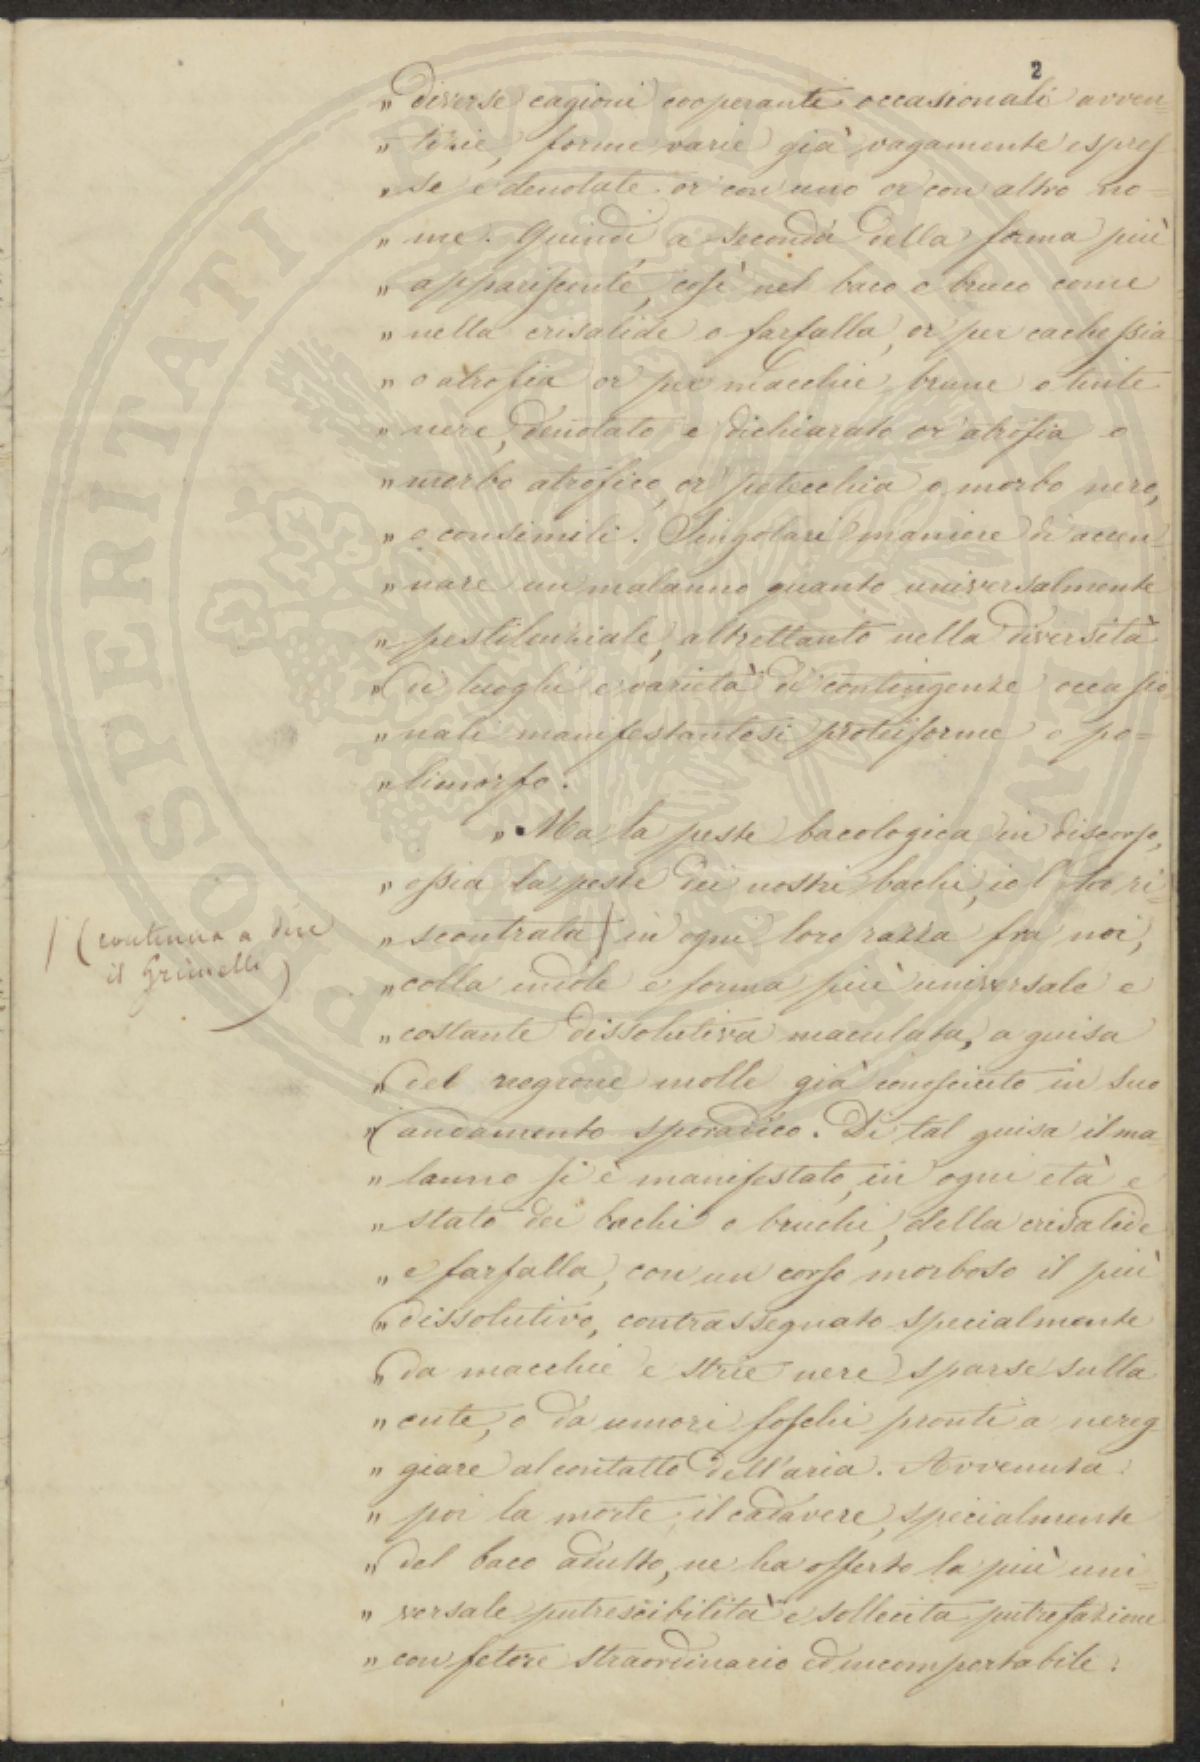 2
" diverse cagioni cooperanti occasionali avven=
" tizie, forme varie già vagamente espres
" se e denotate or con uno or con altro no=
" me. Quindi, a seconda della forma più
" appariscente, così nel baco o bruco come
" nella crisalide o farfalla, or per cachessia
" o atrofia or per macchie brune o tinte
" nere, denotato e dichiarato or atrofia o
" morbo atrofico, or petecchia o morbo nero,
" o consimili. Singolari maniere di accen=
" nare un malanno quanto universalmente
" pestilenziale, altrettanto nella diversità
" di luoghi e varietà di contingenze occasio
" nali manifestantesi proteiforme e po=
" limorfo.
" Ma la peste bacologica in discorso,
" ossia la peste dei nostri bachi, io l'ho ri=
/ (continua a dire
il Grimelli)
" scontrata / in ogni loro razza fra noi,
" colla indole e forma più universale e
" costante dissolutiva maculata, a guisa
" del negrone molle già conosciuto in suo
" andamento sporadico. Di tal guisa il ma=
" lanno si è manifestato, in ogni età e
" stato dei bachi o bruchi, della crisalide
" e farfalla, con un corso morboso il più
" dissolutivo, contrassegnato specialmente
" da macchie e strie nere sparse sulla
" cute, o da umori foschi pronti a nereg
" giare al contatto dell'aria. Avvenuta
" poi la morte, il cadavere, specialmente
" del baco adulto, ne ha offerto la più uni=
" versale putrescibilità e sollecita putrefazione
" con fetore straordinario ed incomportabile.
PROSPERITATI PUBLICAE